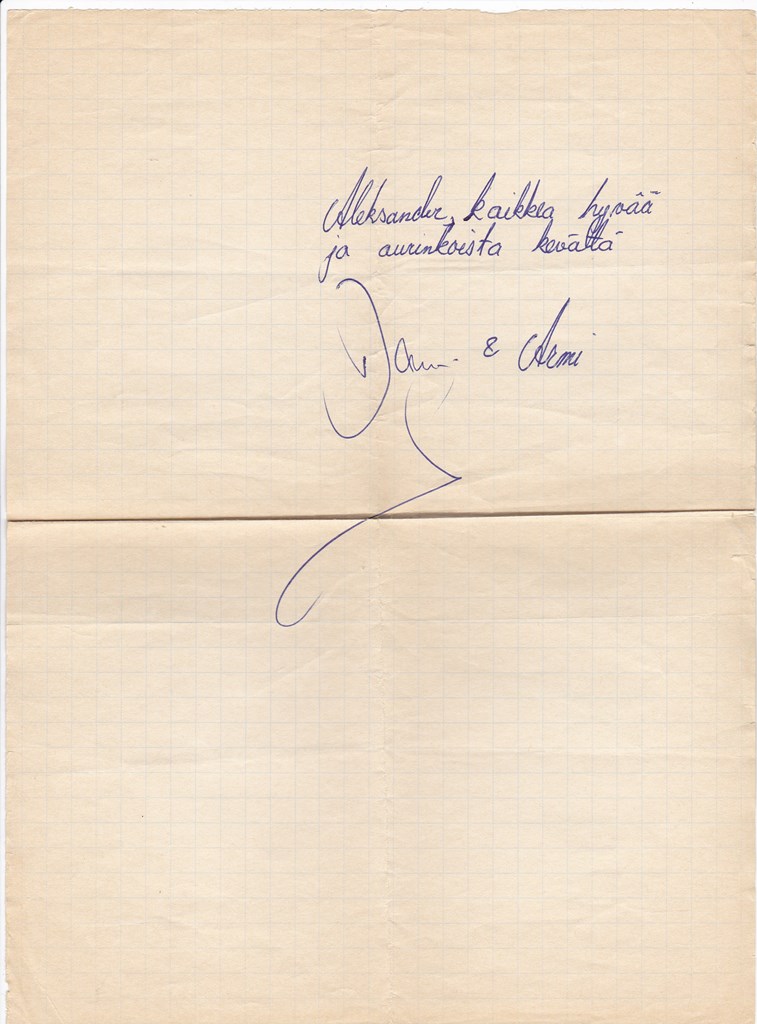 Aleksander, kaikkea hyvää
ja aurinkoista kevättä
& Armi